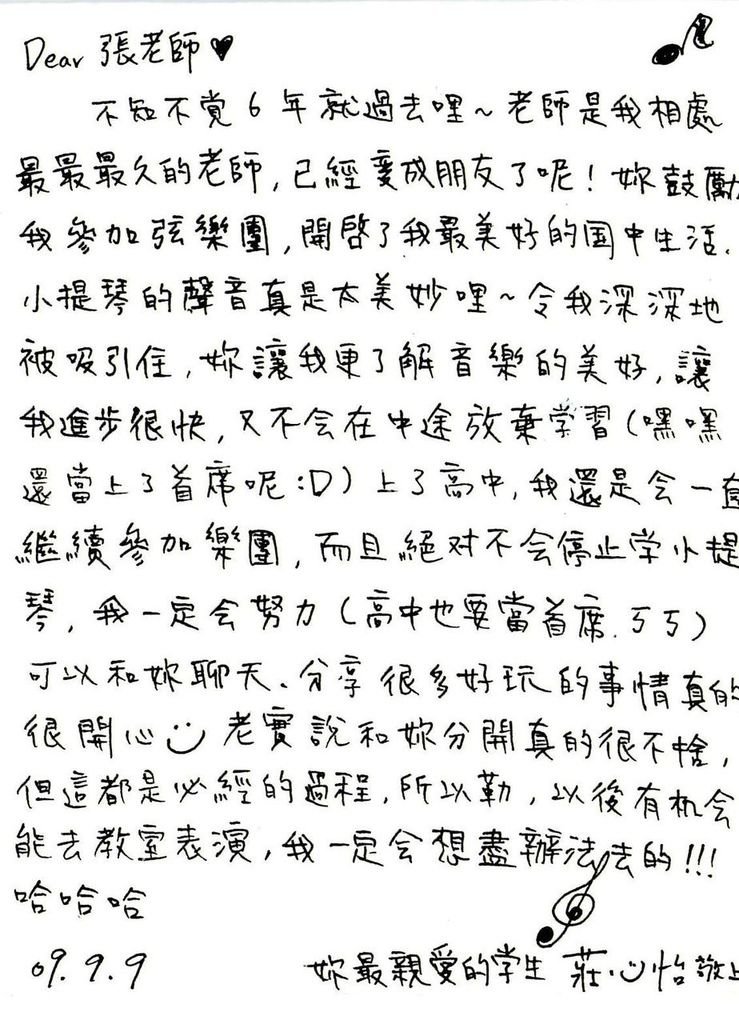 Dear 張老師♥
不知不覚6年就過去哩~老師是我相處
最最最久的老師,已經變成朋友了呢!妳鼓勵
我參加弦樂團,開啓了我最美好的国中生活.
小提琴的聲音真是太美妙哩~令我深深地
被吸引住,妳讓我更了解音樂的美好,讓
我進步很快,又不会在中途放棄学習(嘿嘿
還當上了首席呢:D)上了高中,我還是会一直
繼續參加樂團,而且絕对不会停止学小提
琴,我一定会努力(高中也要當首席.ㄎㄎ)
可以和妳聊天、分享很多好玩的事情真的
很開心☺老實說和妳分開真的很不捨,
但這都是必經的過程,所以勒,以後有机会
能去教室表演,我一定会想盡辦法去的!!!
哈哈哈
09.9.9 妳最親愛的学生 莊心怡敬上